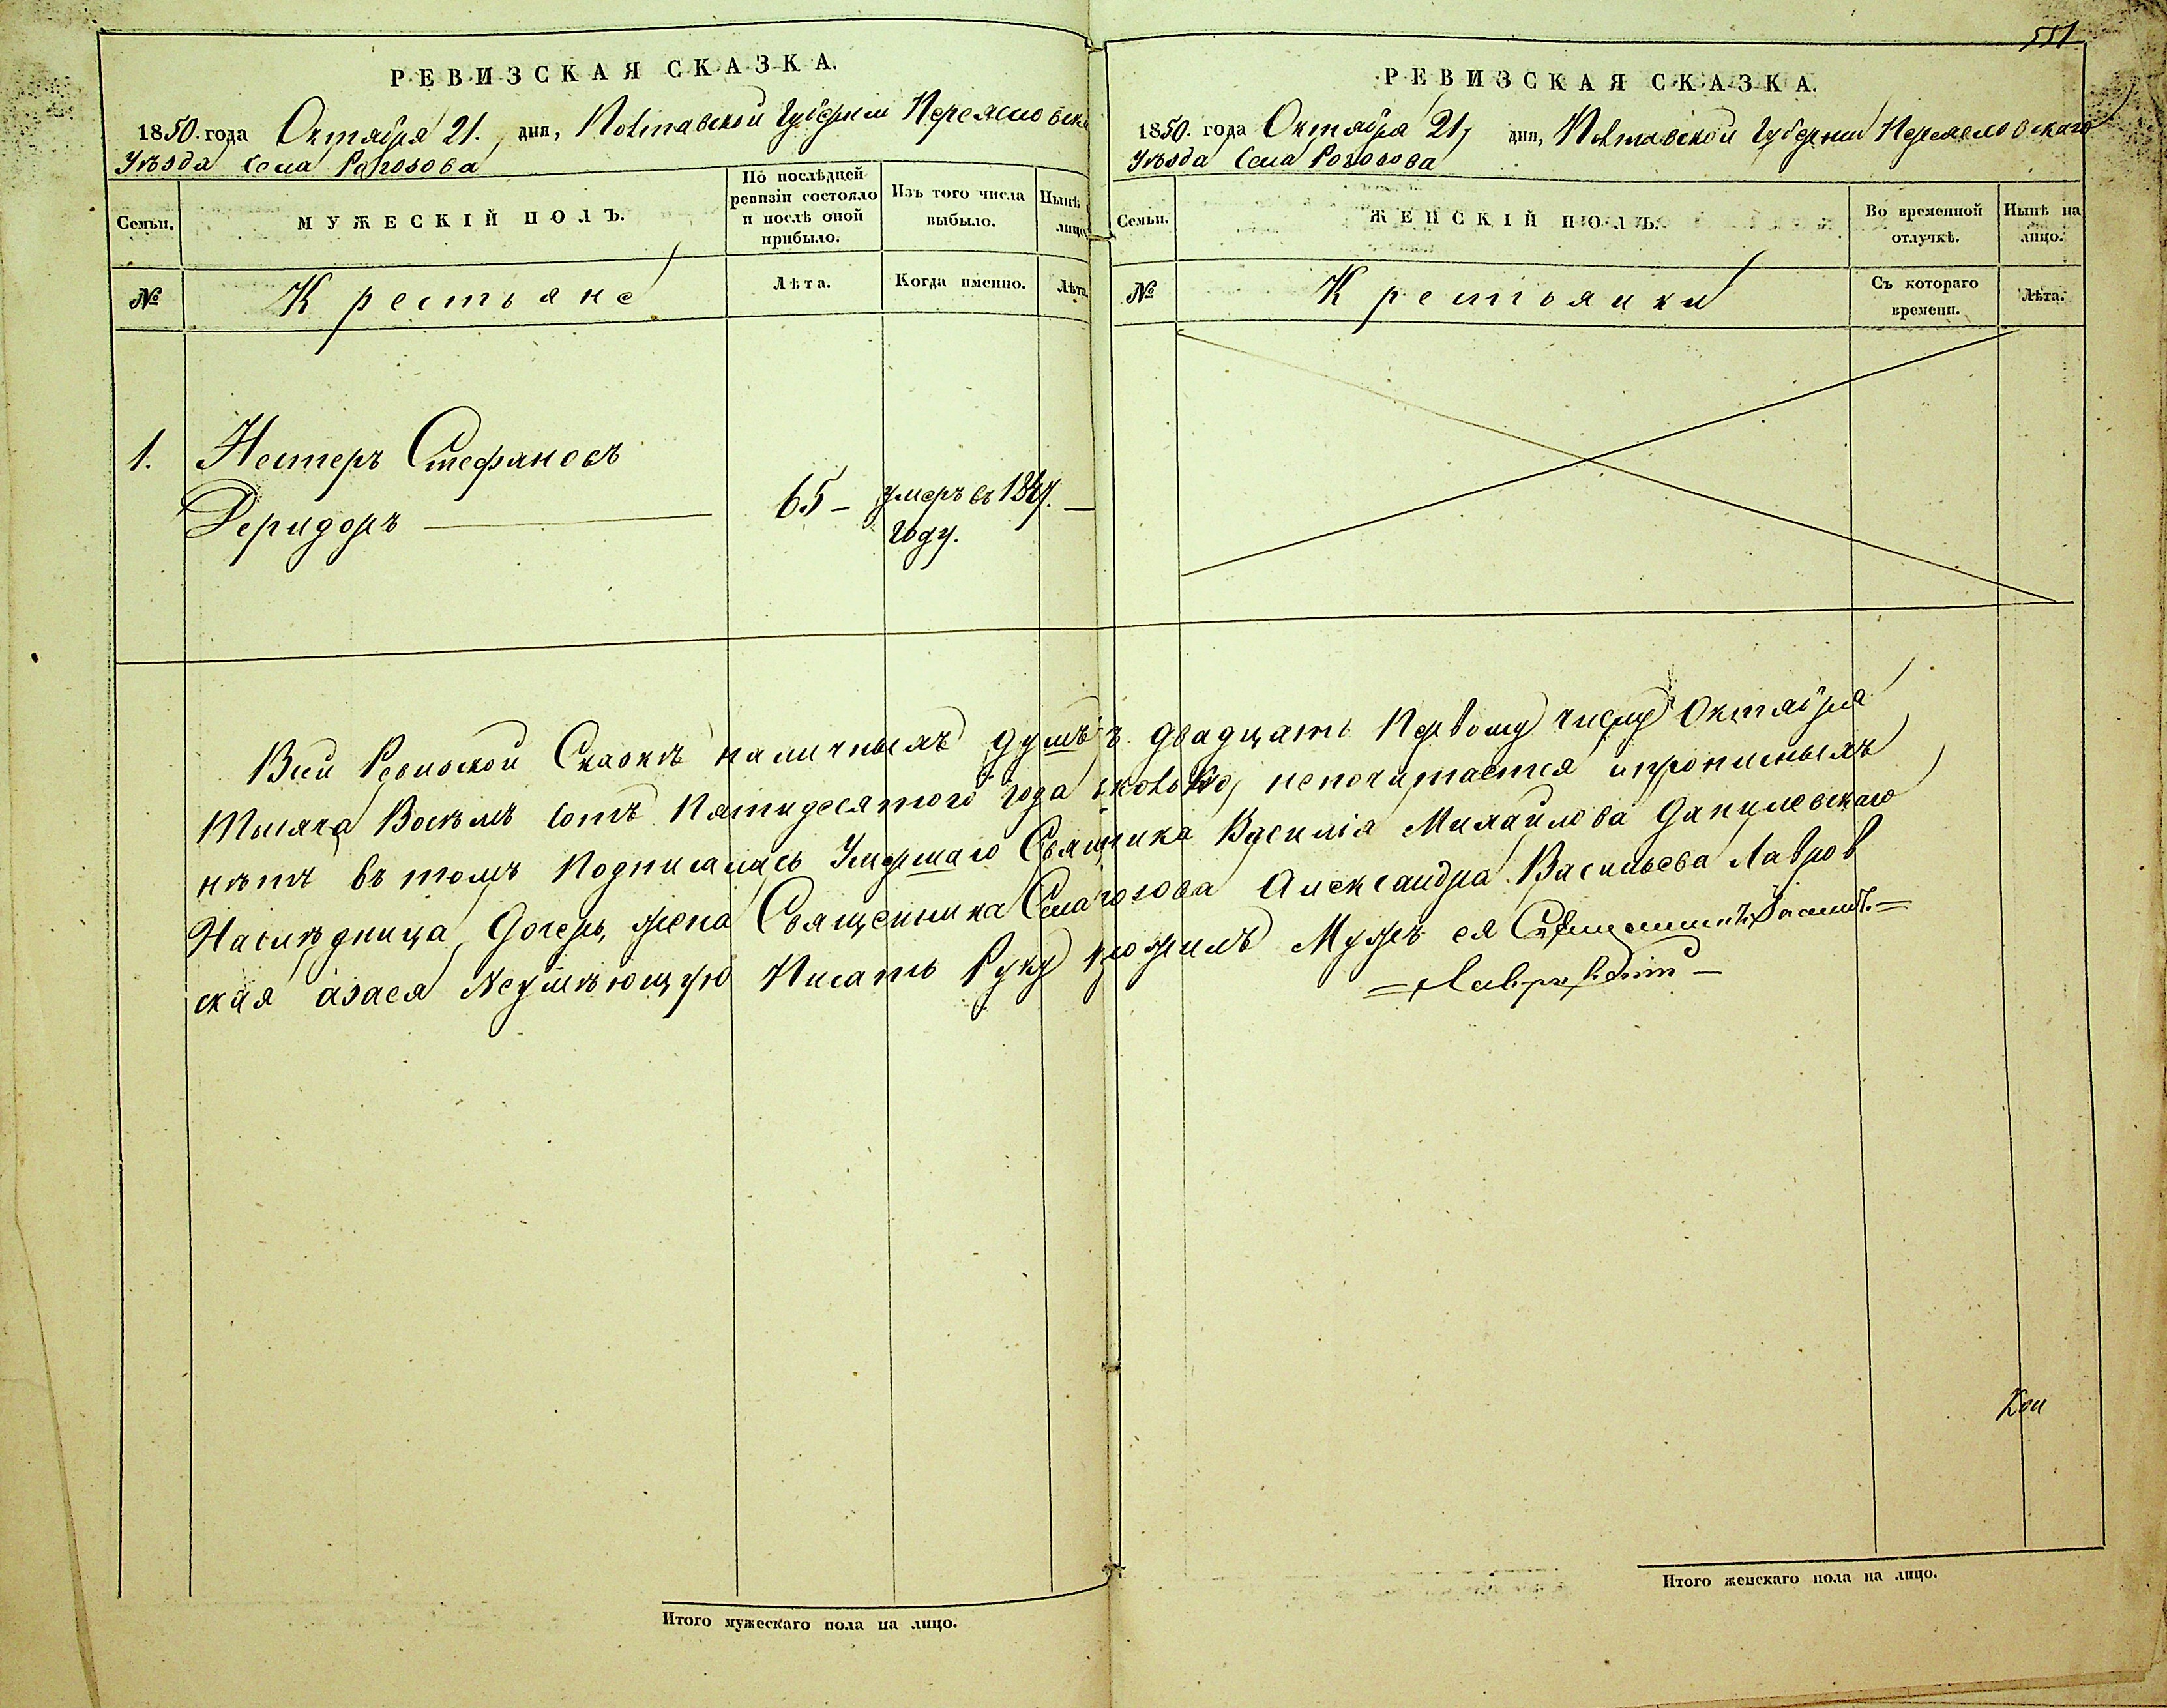 551
РЕВИЗСКАЯ СКАЗКА.
1850. года Октября 21. дня, Полтавской Губернии Переясловска
Уѣзда Села Рогозова
Семьи.
МУЖЕСКІЙ ПОЛЪ.
По послѣдней
ревизіи состояло
и послѣ оной
прибыло.
Изъ того числа
выбыло.
Нынѣ
лицо
№
Крестьяне
Лѣта.
Когда именно.
Лѣта.
1.
Нестеръ Стефановъ
Деридоръ
65
умеръ въ 1847.
году.
РЕВИЗСКАЯ СКАЗКА.
1850. года Октября 21, дня, Полтавской Губернии Переясловскаго
Уѣзда Села Рогозова
Семьи.
ЖЕНСКІЙ ПОЛЪ.
Во временной
отлучкѣ.
Нынѣ на
лицо.
№
Крестьянки
Съ котораго
времени.
Лѣта.
Всей Ревизской Сказкѣ наличныхъ душъ ъ двадцать Первому числу Октября
Тысяча Восѣмъ сотъ Пятидесятого года сколько, непочитается ипрописныхъ
нѣтъ въ томъ Подписалась Умершаго Свящника Василія Михайлова Данилевскаго
Наслѣдница Дочерь, жена Священника Села гозова Александра Васильева Лавров
ская азаея Неумѣющую Писать Руку Мужъ ея Священникъ
Кон
Итого мужескаго пола на лицо.
Итого женскаго пола на лицо.